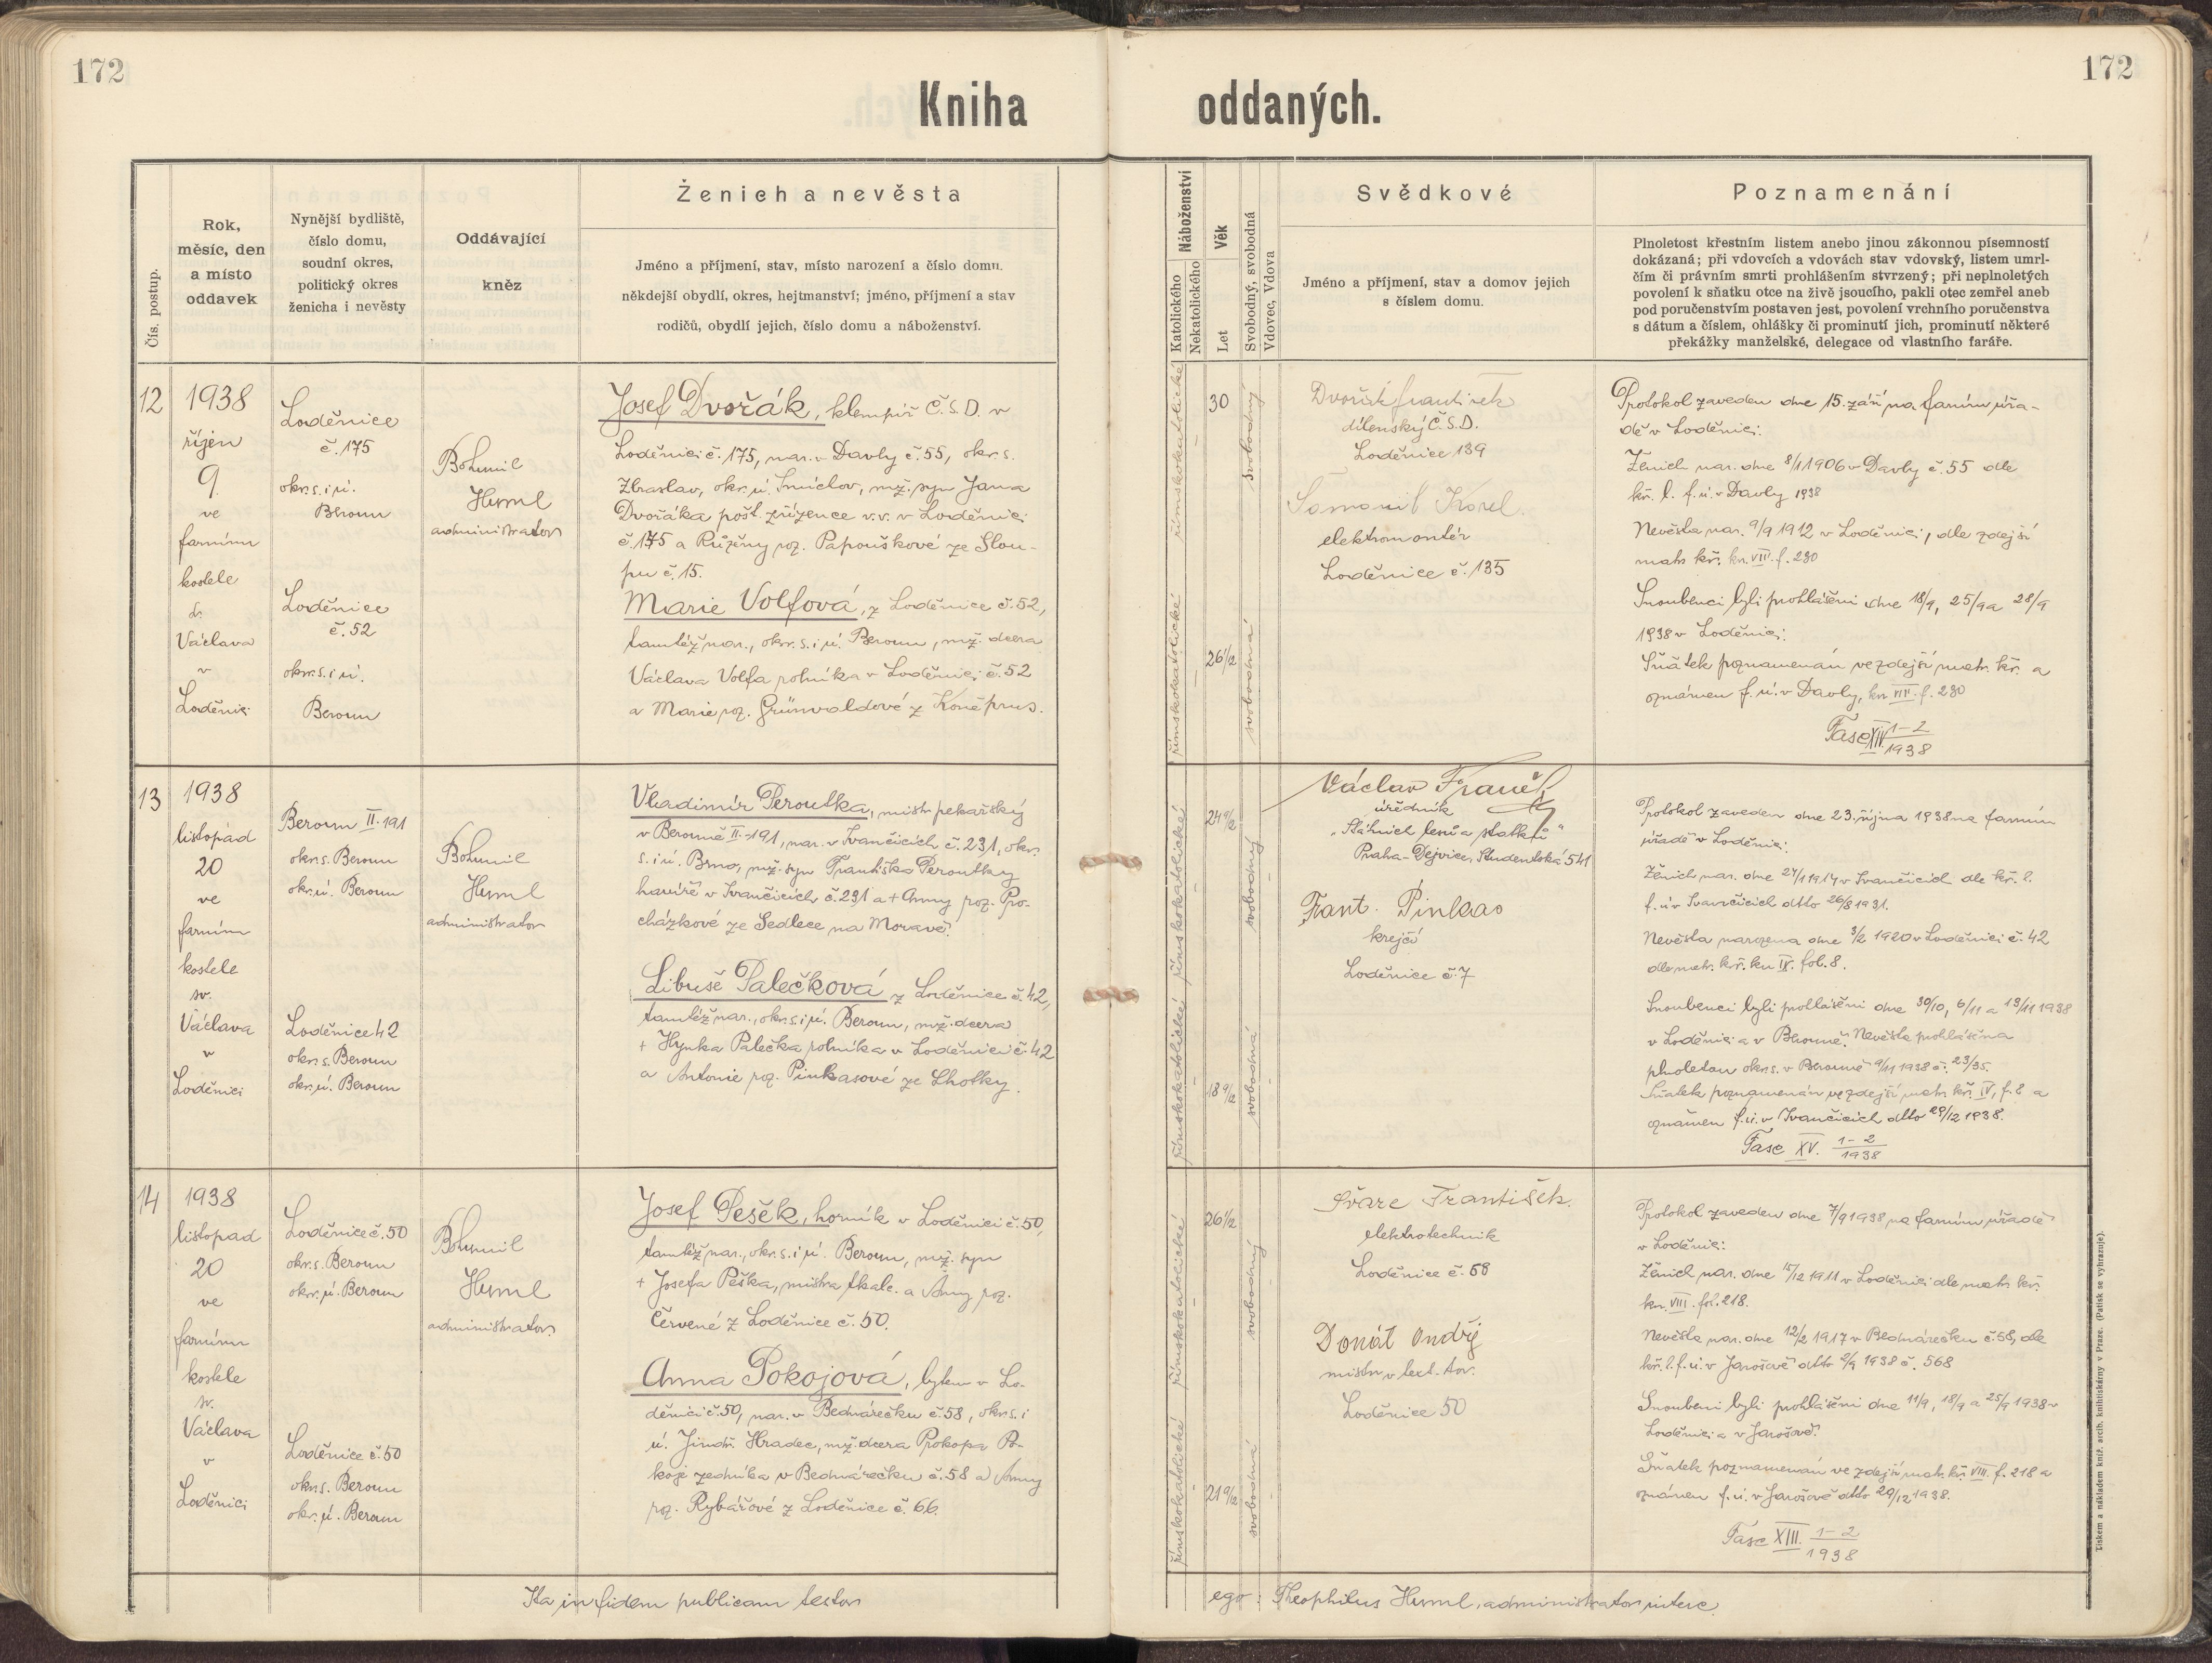 172
172
Kniha oddaných.
Čís. postup.
Rok,
měsíc, den
a místo
oddavek
Nynější bydliště,
číslo domu,
soudní okres,
politický okres
ženicha i nevěsty
Oddávající
kněz
Ženich a nevěsta
Jméno a příjmení, stav, místo narození a číslo domu.
někdejší obydlí, okres, hejtmanství; jméno, příjmení a stav
rodičů, obydlí jejich, číslo domu a náboženství.
Náboženství
Katolického
Nekatolického
Věk
Let
Svobodný, svobodná
Vdovec, Vdova
Svědkové
Jméno a příjmení, stav a domov jejich
s číslem domu.
Poznamenání
Plnoletost křestním listem anebo jinou zákonnou písemností
dokázaná; při vdovcích a vdovách stav vdovský, listem umrl-
čím či právním smrti prohlášením stvrzený; při neplnoletých
povolení k sňatku otce na živě jsoucího, pakli otec zemřel aneb
pod poručenstvím postaven jest, povolení vrchního poručenstva
s dátum a číslem, ohlášky či prominutí jich, prominutí některé
překážky manželské, delegace od vlastního faráře.
12
1938
říjen
9.
ve
farním
kostele
sv.
Václava
v
Loděnici
Loděnice
č. 175
okr. s. i ú.
Beroun
Loděnice
č. 52
okr. s. i ú.
Beroun
Bohumil
Huml
administrator
Josef Dvořák, klempíř Č.S.D. v
Loděnici č. 175, nar. v Davly č. 55, okr. s.
Zbraslav, okr. ú. Smíchov, mž. syn Jana
Dvořáka pošt. zřízence v.v. v Loděnici
č. 175 a Růženy roz. Papouškové ze Slou-
pu č. 15.
Marie Volfová, z Loděnice č. 52,
tamtéž nar., okr. s. i ú. Beroun, mž. dcera
Václava Volfa rolníka v Loděnici č. 52
a Marie roz. Grünwaldové z Koněprus.
římskokatolické
římskokatolické
30
26 1/2
svobodný
svobodná
Dvořák František
dílenský Č.S.D.
Loděnice 139
Karel
elektromontér
Loděnice č. 135
Protokol zaveden dne 15. září na farním úřa-
dě v Loděnici.
Ženich nar. dne 8/1 1906 v Davly č. 55 dle
kř. l. f. ú. v Davly 1938
Nevěsta nar. 9/9 1912 v Loděnici, dle zdejší
matr. kř. kn. VII. f. 230
Snoubenci byli prohlášeni dne 18/9, 25/9 a 28/9
1938 v Loděnici.
Sňatek poznamenán ve zdejší matr. kř. a
oznámen f. ú. v Davly, kn. VIII. f. 230
Fasc XIV 1-2/1938
13
1938
listopad
20
ve
farním
kostele
sv.
Václava
v
Loděnici
Beroun II. 191
okr. s. Beroun
okr. ú. Beroun
Loděnice 42
okr. s. Beroun
okr. ú. Beroun
Bohumil
Huml
administrator
Vladimír Peroutka, mistr pekařský
v Berouně II-191, nar. v Ivančicích č. 231, okr.
s. i ú. Brno, mž. syn Františka Peroutky
havíře v Ivančicích č. 231 a + Anny roz. Pro-
cházkové ze Sedlece na Moravě.
Libuše Palečková z Loděnice č. 42,
tamtéž nar., okr. s. i ú. Beroun, mž. dcera
+ Hynka Palečka rolníka v Loděnici č. 42
a Antonie roz. Pinkasové ze Lhotky.
římskokatolické
římskokatolické
24 9/12
18 9/12
svobodný
svobodná
Václav
úředník
„Státních lesů a statků"
Praha-Dejvice, Studentská 541
Frant. Pinkas
krejčí
Loděnice č. 7
Protokol zaveden dne 23. října 1938 na farním
úřadě v Loděnici.
Ženich nar. dne 24/1 1914 v Ivančicích dle kř. l.
f. ú. v Ivančicích dtto 26/8 1931.
Nevěsta narozena dne 3/2 1920 v Loděnici č. 42
dle matr. kř. kn IX. fol. 8.
Snoubenci byli prohlášeni dne 30/10, 6/11 a 13/11 1938
v Loděnici a v Berouně. Nevěsta prohlášena
plnoletou okr. s. v Berouně 9/11 1938 č. 23/35.
Sňatek poznamenán ve zdejší matr. kř. IX, f. 8 a
oznámen f. ú. v Ivančicích dtto 29/12 1938.
Fasc XV. 1-2/1938
14
1938
listopad
20
ve
farním
kostele
sv.
Václava
v
Loděnici
Loděnice č. 50
okr. s. Beroun
okr. ú. Beroun
Loděnice č. 50
okr. s. Beroun
okr. ú. Beroun
Bohumil
Huml
administrator
Josef Pešek, horník v Loděnici č. 50,
tamtéž nar., okr. s. i ú. Beroun, mž. syn
+ Josefa Peška, mistra tkalc. a Anny roz.
Červené z Loděnice č. 50.
Anna Pokojová, bytem v Lo-
děnici č. 50, nar. v Bednárečku č. 58, okr. s. i
ú. Jindř. Hradec, mž. dcera Prokopa Po-
koje zedníka v Bednárečku č. 58 a Anny
roz. Rybářové z Loděnice č. 66.
římskokatolické
římskokatolické
26 1/2
21 9/12
svobodný
svobodná
Švarc František.
elektrotechnik
Loděnice č. 68
Donát Ondřj
mistr v text. tov.
Loděnice 50
Protokol zaveden dne 7/9 1938 na farním úřadě
v Loděnici.
Ženich nar. dne 15/12 1911 v Loděnici dle matr. kř.
kn. VIII. fol. 218.
Nevěsta nar. dne 12/2 1917 v Bednárečku č. 58, dle
kř. l. f. ú. v Jarošově dtto 2/9 1938 č. 568
Snoubenci byli prohlášeni dne 11/9, 18/9 a 25/9 1938 v
Loděnici a v Jarošově.
Sňatek poznamenán ve zdejší matr. kř. VIII. f. 218 a
oznámen f. ú. v Jarošově dtto 29/12 1938.
Fasc XIII. 1-2/1938
Ita in fidem publicam testor
ego: Theophilus Huml, administrator interc.
Tiskem a nákladem kníž. arcib. knihtiskárny v Praze. (Patisk se vyhrazuje).